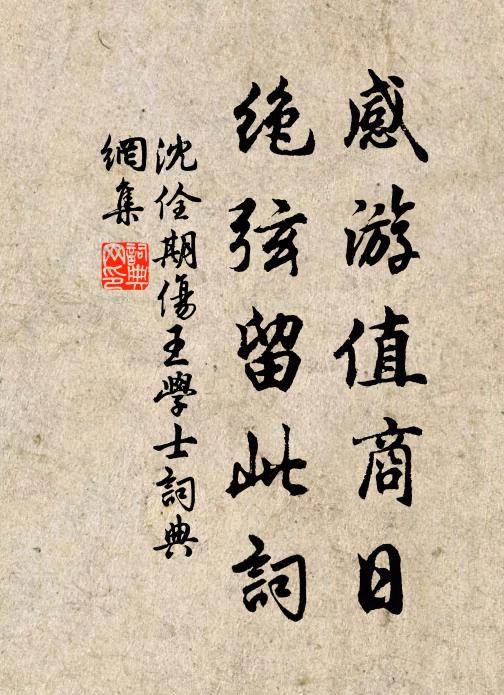 感游值商日
绝弦留此詞
沈佺期傷王學士詞典
網集
詞典網印